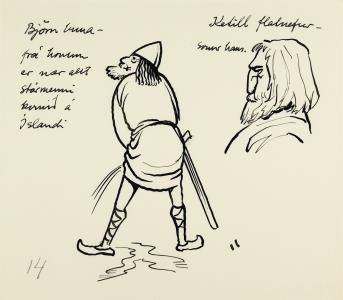 Björn buna -
frá honum
er nær allt
stórmenni
komið á
Íslandi
Ketill flatnefur -
sonur hans.
14